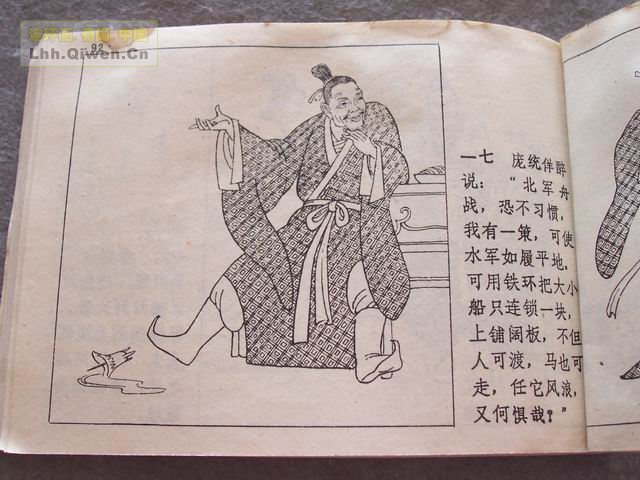 Lhh.Qiwen.Cn
92
一七 庞统佯醉
说：“北军舟
战，恐不习惯，
我有一策，可使
水军如履平地。
可用铁环把大小
船只连锁一块，
上铺阔板，不但
人可渡，马也可
走，任它风浪，
又何惧哉？”